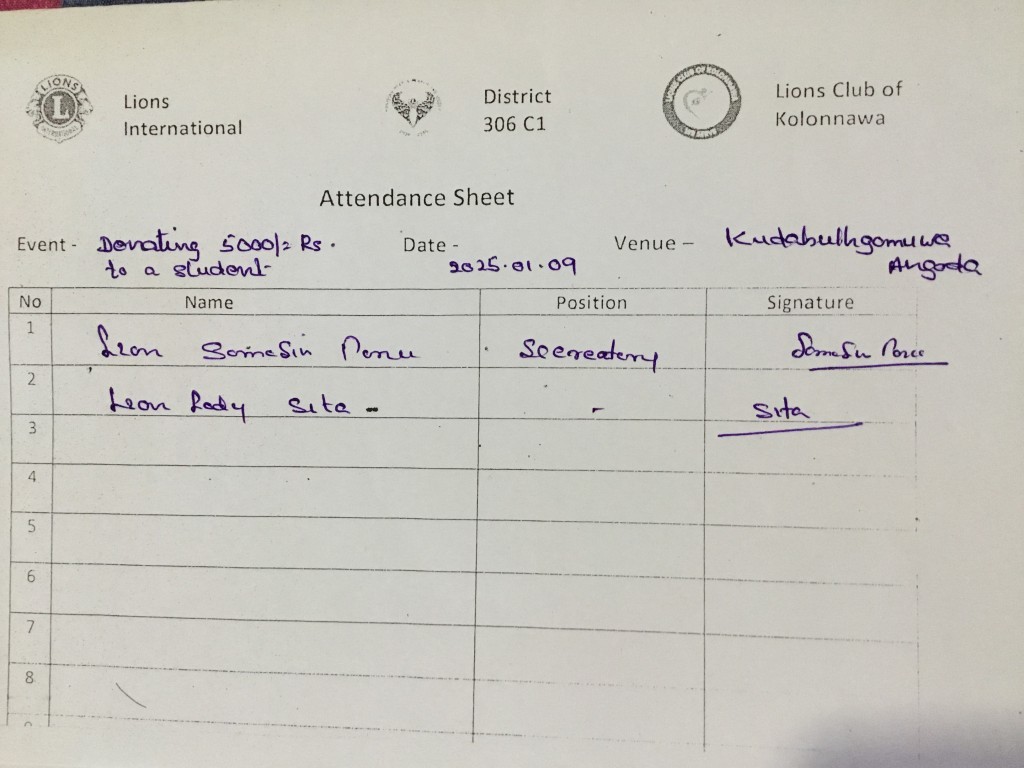 LIONS
L
INTERNATIONAL
Lions
International
District
306 C1
LIONS CLUB OF KOLONNAWA
Lions Club of
Kolonnawa
Attendance Sheet
Event - Donating 5000/= Rs.
to a student
Date -
2025.01.09
Venue – Kudabuthgomuwa
Angoda
No Name Position Signature
1 Lion Secreatery
2 Lion Lady Sita - - Sita
3
4
5
6
7
8